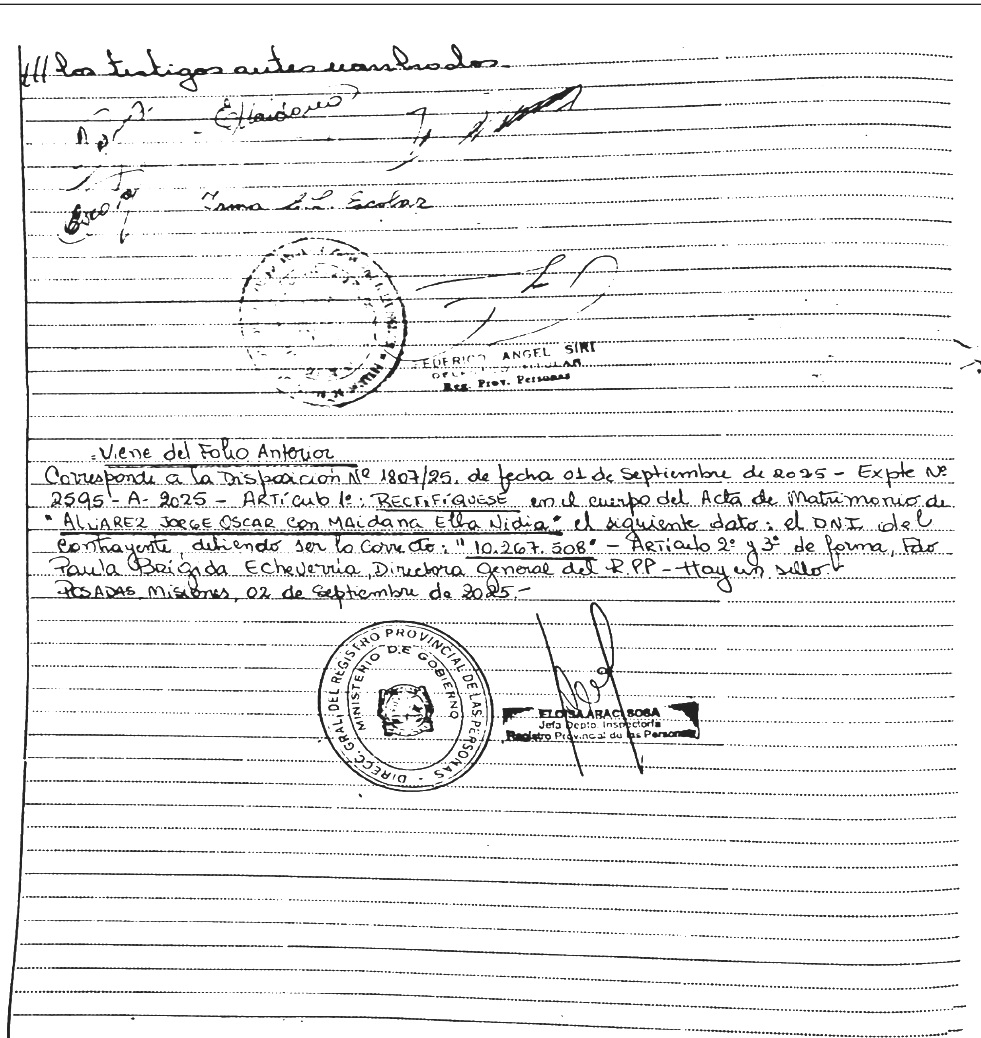 /// los testigos antes nombrados.-
E/Maidana
Irma E.L. Escobar
FEDERICO ANGEL SIRI
Reg. Prov. Personas
=Viene del Folio Anterior
Corresponde a la Disposición Nº 1807/25. de fecha 01 de Septiembre de 2025 - Expte Nº
2595 - A - 2025 - ARTÍCulo 1º: RECTIFÍQUESE en el cuerpo del Acta de Matrimonio de
"ALVAREZ JORGE OSCAR con MAIdana Elba Nidia" el siguiente dato: el D.N.I del
Contrayente, debiendo ser lo Correcto: "10.267.508" - ARTículo 2º y 3º de forma, Fdo
Paula Brígida Echeverria, Directora General del R.P.P - Hay un sello.-
POSADAS, Misiones, 02 de Septiembre de 2025.-
DIRECC. GRAL. DEL REGISTRO PROVINCIAL DE LAS PERSONAS -
MINISTERIO DE GOBIERNO
ELOISA ARACI SOSA
Jefa Depto. Inspectoría
Registro Provincial de las Personas